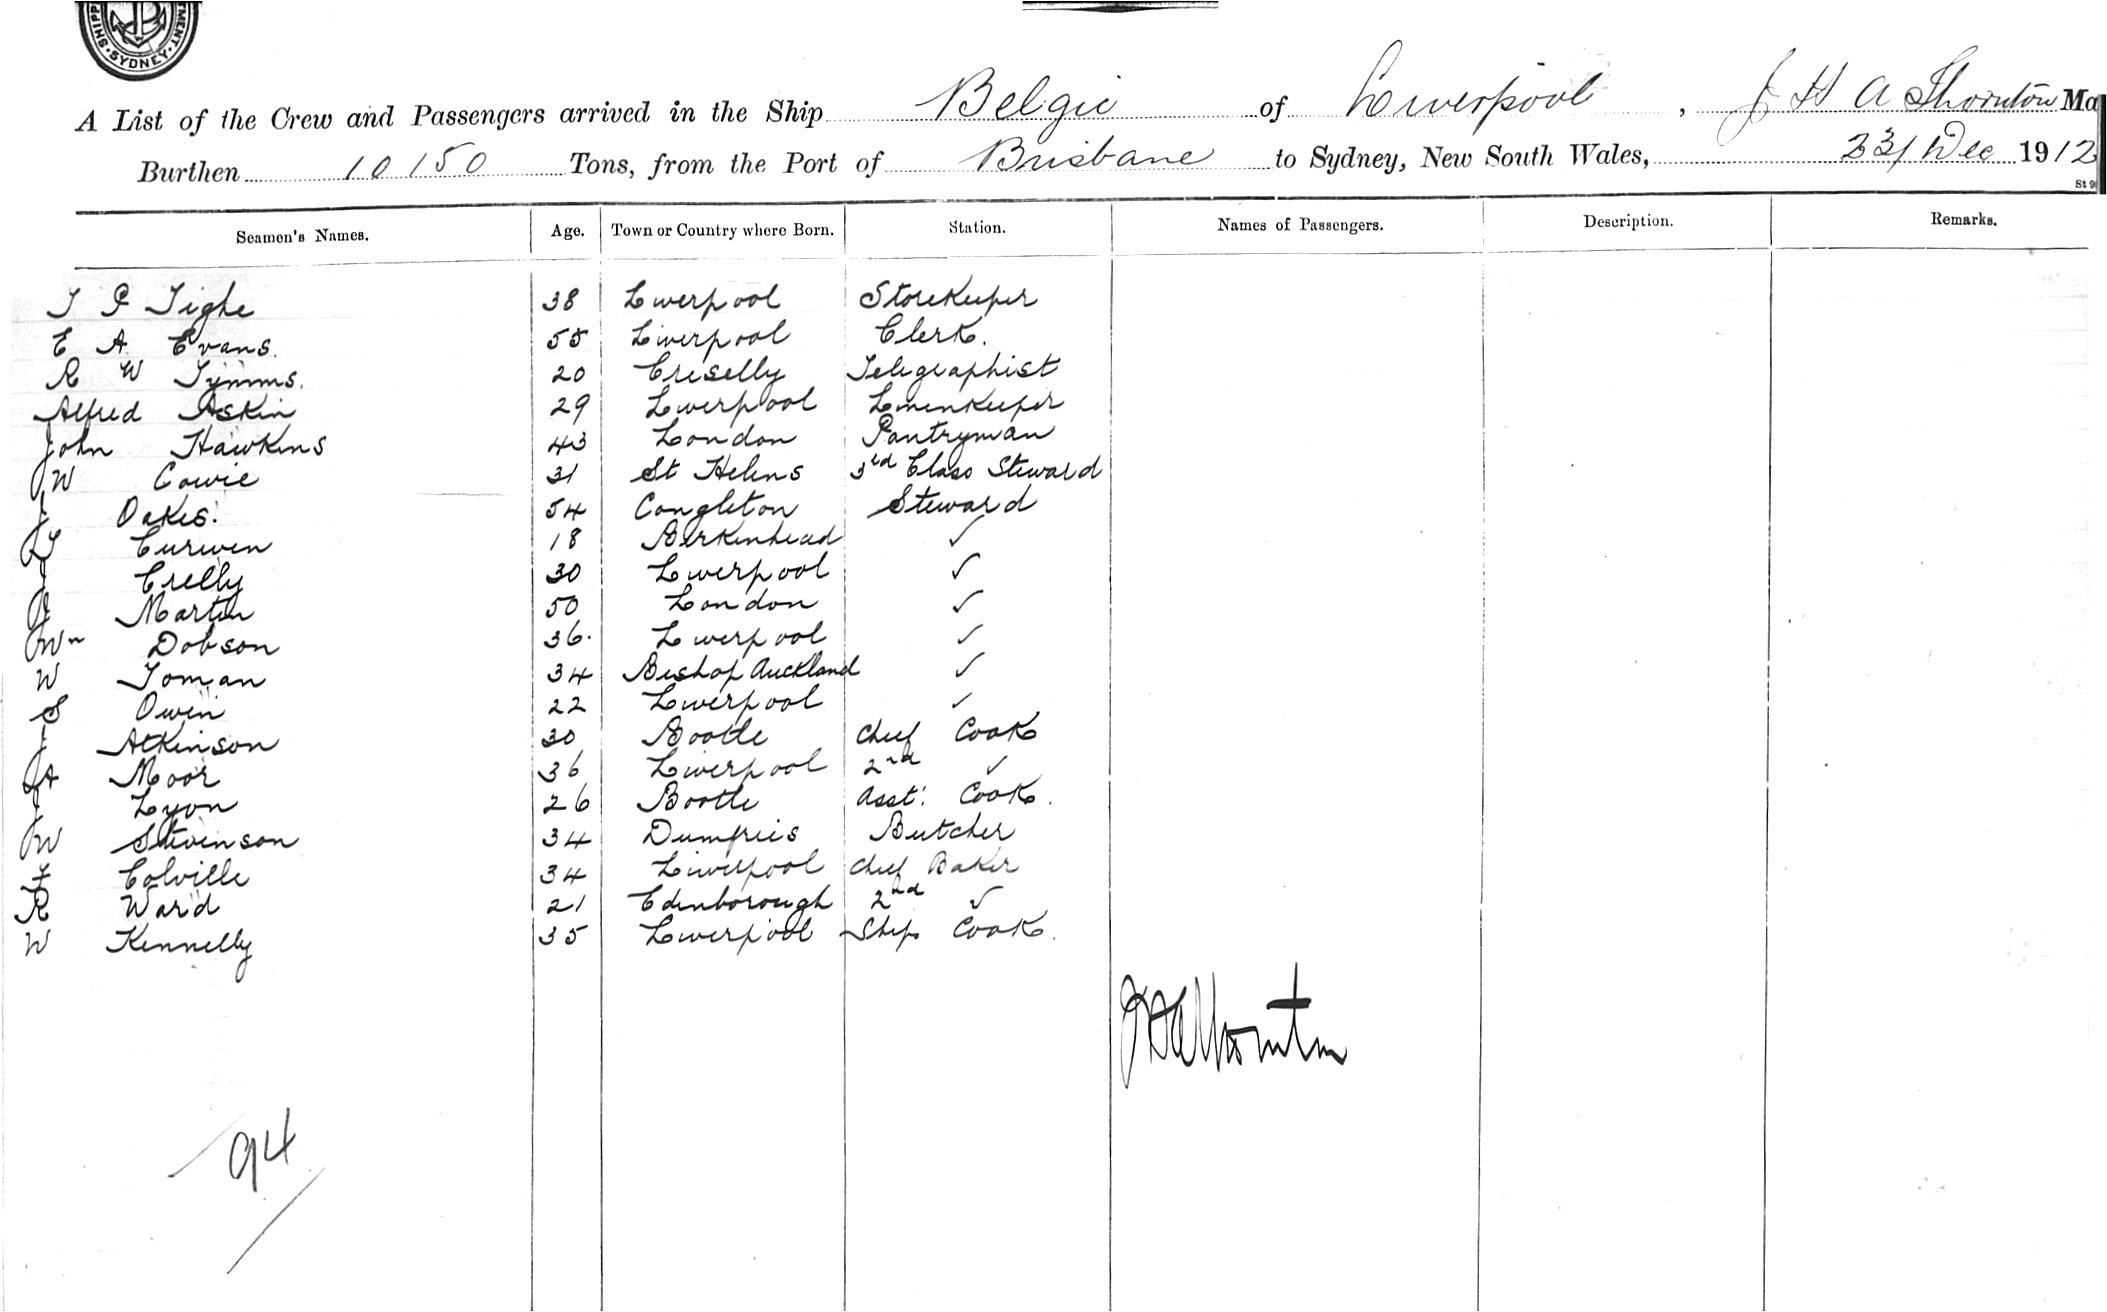 SHIPPI
SYDNEY
TMENT
A List of the Crew and Passengers arrived in the Ship Belgic of Liverpool, J H A Thornton Ma
Burthen 10150 Tons, from the Port of Brisbane to Sydney, New South Wales, 23/ Dec 1912
St 9
Seamen's Names. Age. Town or Country where Born. Station. Names of Passengers. Description. Remarks.
T P Tighe 38 Liverpool Storekeeper
E A Evans. 55 Liverpool Clerk.
R W Tymms. 20 Creselly Telegraphist
Alfred Askin 29 Liverpool Linenkeeper
John Hawkins 43 London Pantryman
W Cowie 31 St Helens 3rd Class Steward
J Oakes. 54 Congleton Steward
Curwen 18 Birkenhead ✓
J Crelly 30 Liverpool ✓
Martin 50 London ✓
Wm Dobson 36. Liverpool ✓
W Toman 34 Bishop Auckland ✓
S Owen 22 Liverpool ✓
J Atkinson 30 Bootle Chief Cook
A Moor 36 Liverpool 2nd ✓
J Lyon 26 Bootle Asst. Cook.
W Stevenson 34 Dumfries Butcher
F Colville 34 Liverpool Chief Baker
R Ward 21 Edinborough 2nd ✓
W Kennelly 35 Liverpool Ships Cook.
JHAThornton
94